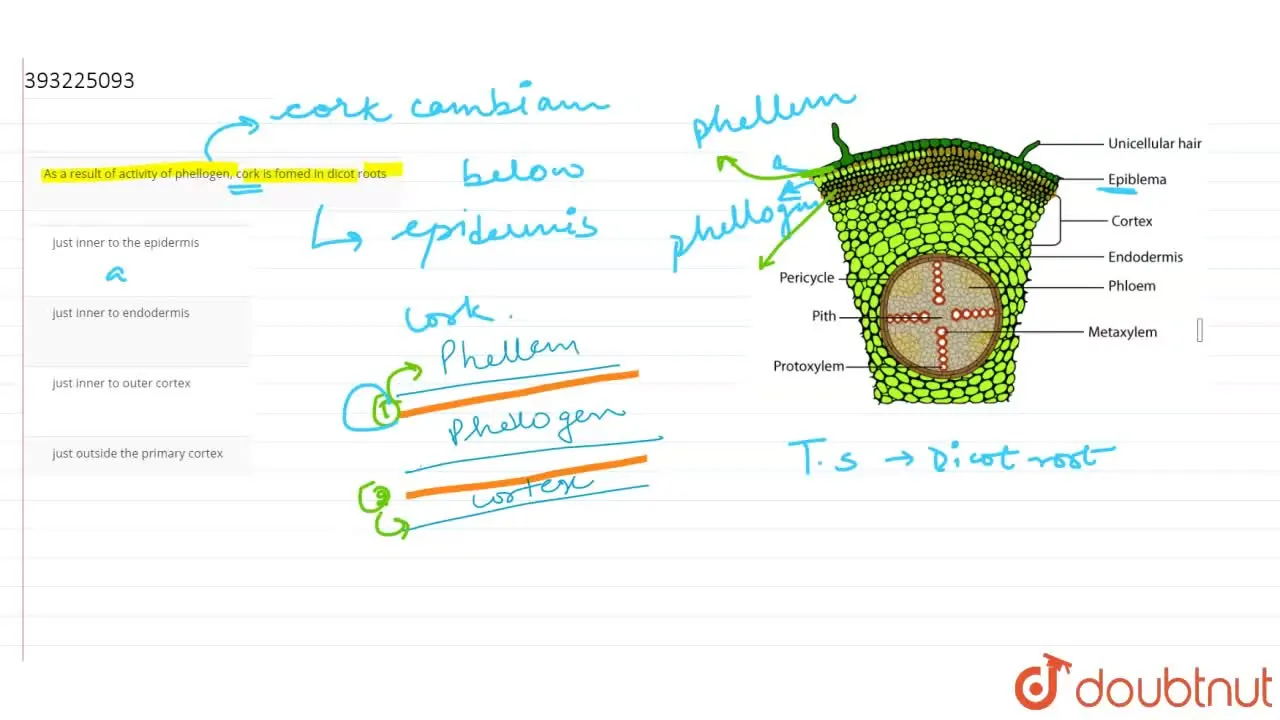 393225093
cork cambiam
As a result of activity of phellogen, cork is fomed In dicot roots
below
epidermis
just inner to the epidermis
a
just inner to endodermis
just inner to outer cortex
just outside the primary cortex
cork.
Phellem
1
Phellogen
2
cortex
phellem
phellogen
Unicellular hair
Epiblema
Cortex
Endodermis
Pericycle
Phloem
Pith
Metaxylem
Protoxylem
T.S → Dicot root
doubtnut